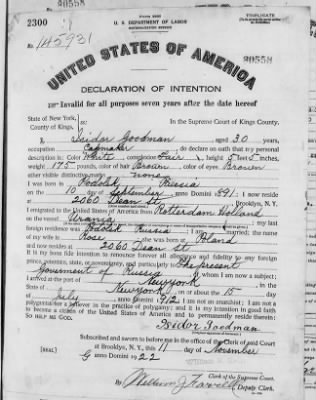 90558
U. S. DEPARTMENT OF LABOR
NATURALIZATION SERVICE
TRIPLICATE
2300
No. 145931
90558
UNITED STATES OF AMERICA
DECLARATION OF INTENTION
Invalid for all purposes seven years after the date hereof
State of New York,
County of Kings,
In the Supreme Court of Kings County.
I, Isidor Goodman, aged 30 years,
occupation Capmaker, do declare on oath that my personal
description is: Color White, complexion Fair, height 5 feet 5 inches,
weight 175 pounds, color of hair Brown, color of eyes Brown
other visible distinctive marks none
I was born in Podolsk Russia
on the 10 day of September, anno Domini 1891; I now reside
at 2060 Dean St, Brooklyn, N. Y.
I emigrated to the United States of America from Rotterdam Holland
on the vessel; my last
foreign residence was Russia; I am married; the name
of my wife is Rose; she was born at Poland
and now resides at 2060 Dean St.
It is my bona fide intention to renounce forever all allegiance and fidelity to any foreign
prince, potentate, state, or sovereignty, and particularly to The present
Government of Russia, of whom I am now a subject;
I arrived at the port of New York, in the
State of New York, on or about the 15 day
of July, anno Domini 1912; I am not an anarchist; I am not a
polygamist nor a believer in the practice of polygamy; and it is my intention in good faith
to become a citizen of the United States of America and to permanently reside therein:
SO HELP ME GOD.
Isidor Goodman
Subscribed and sworn to before me in the office of the Clerk of said Court
at Brooklyn, N. Y., this 11 day of November
[SEAL]
anno Domini 1922
Clerk of the Supreme Court.
By William J. , Deputy Clerk.